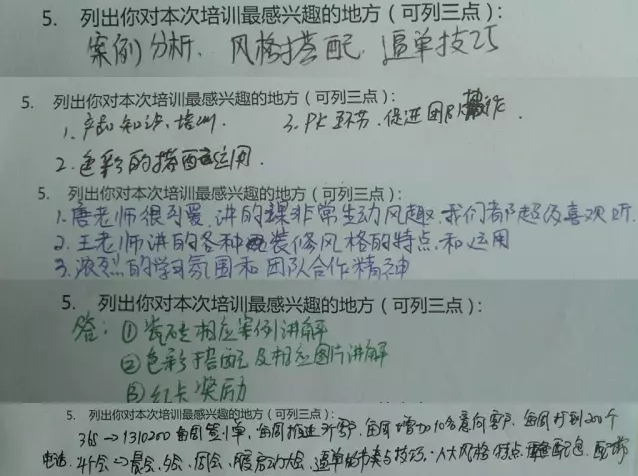 5. 列出你对本次培训最感兴趣的地方（可列三点）：
案例分析、风格搭配、逼单技巧
5. 列出你对本次培训最感兴趣的地方（可列三点）：
1、产品知识、培训. 3、PK环节、促进团队
2、色彩的搭配运用.
5. 列出你对本次培训最感兴趣的地方（可列三点）：
1、唐老师很可爱，讲的课非常生动风趣，我们都超级喜欢听.
2、王老师讲的各种装修风格的特点，和运用
3、浓烈的学习氛围和团队合作精神
5. 列出你对本次培训最感兴趣的地方（可列三点）：
答：①瓷砖相应案例讲解
②色彩搭配及相应图片讲解
③红卡奖励
5. 列出你对本次培训最感兴趣的地方（可列三点）：
365→1310200 每周签1单，每周推进3个客户，每周增加10名意向客户，每周打到200个
电话. 4个会→晨会、夕会、周会、启动大会，逼单的技巧、八大风格特点、配色